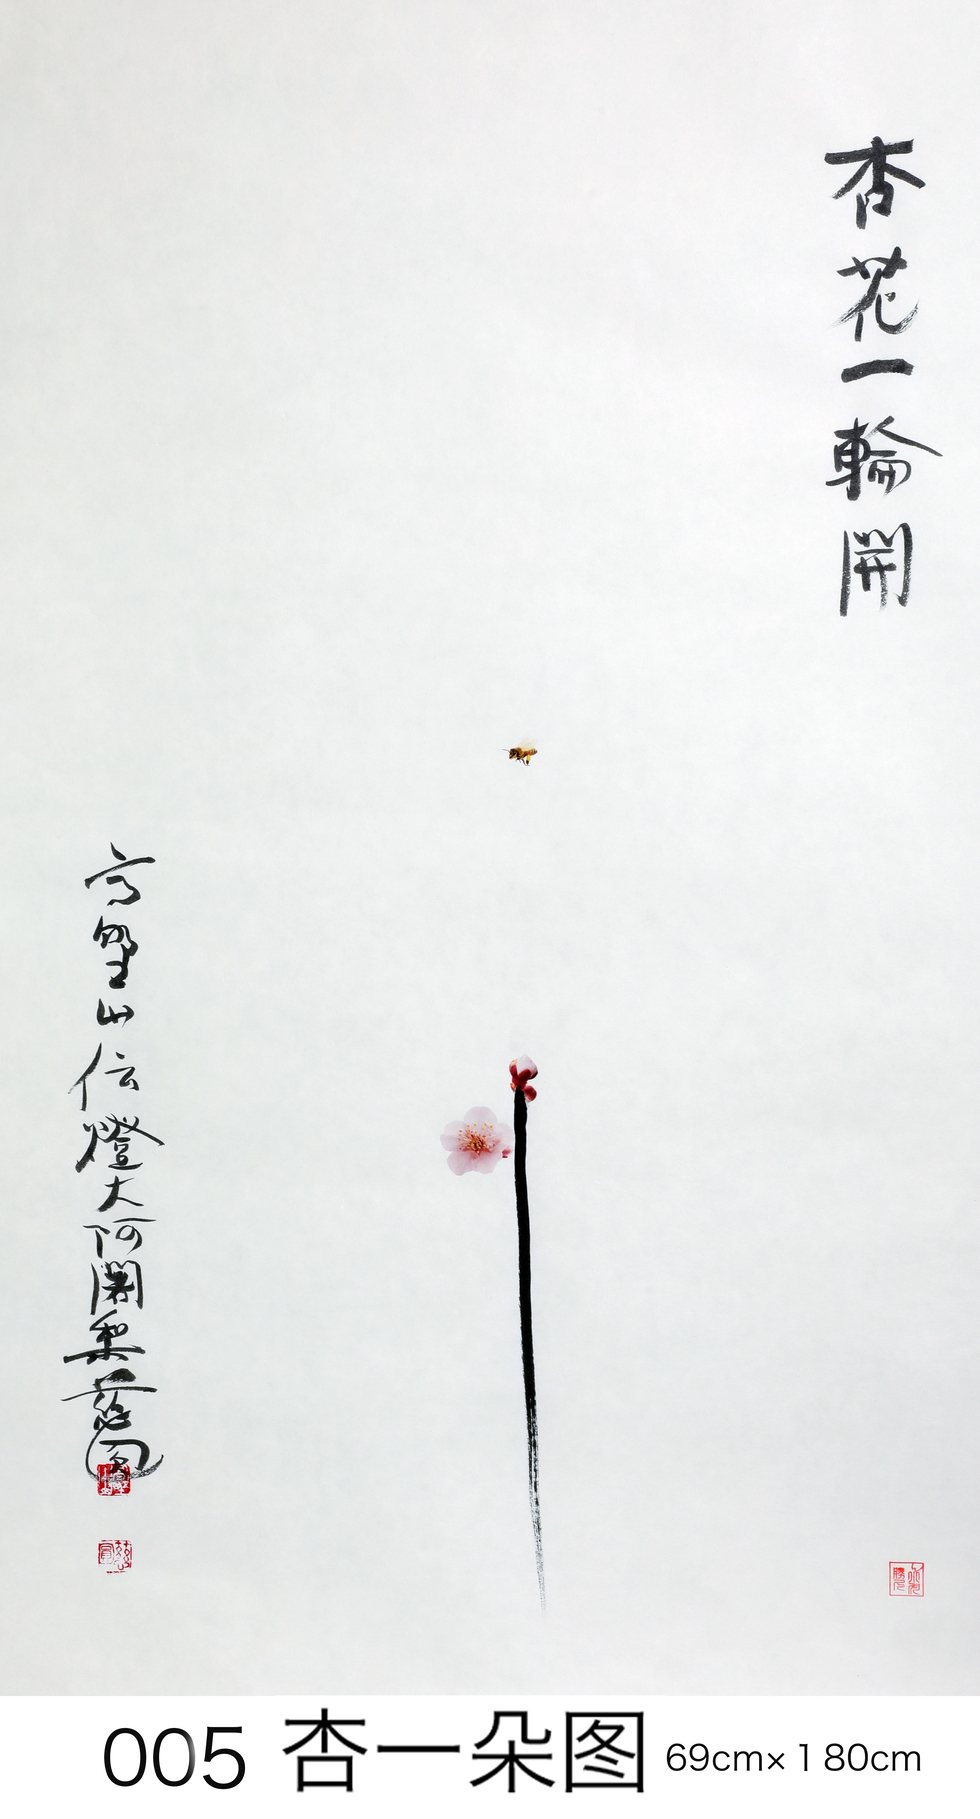 杏花一輪開
高野山伝燈大阿闍梨慈圓
005 杏一朵图 69cm×180cm